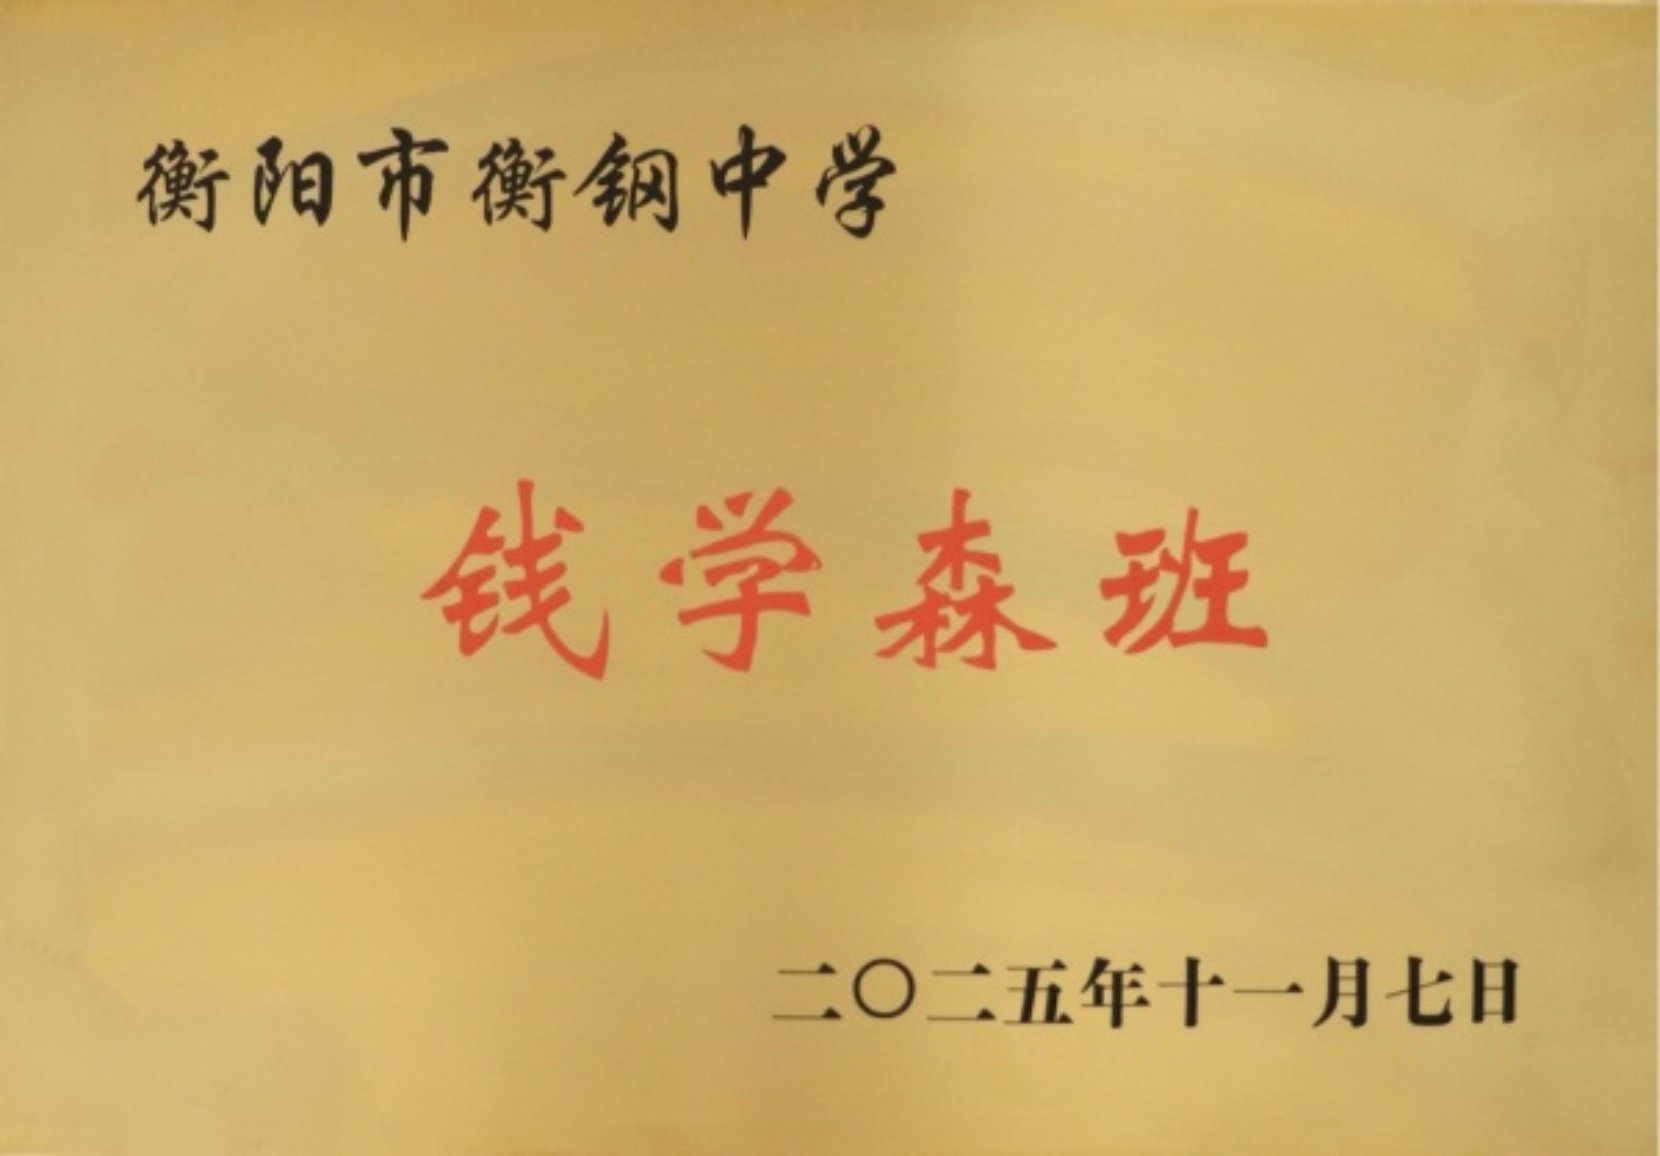 衡阳市衡钢中学
钱学森班
二〇二五年十一月七日